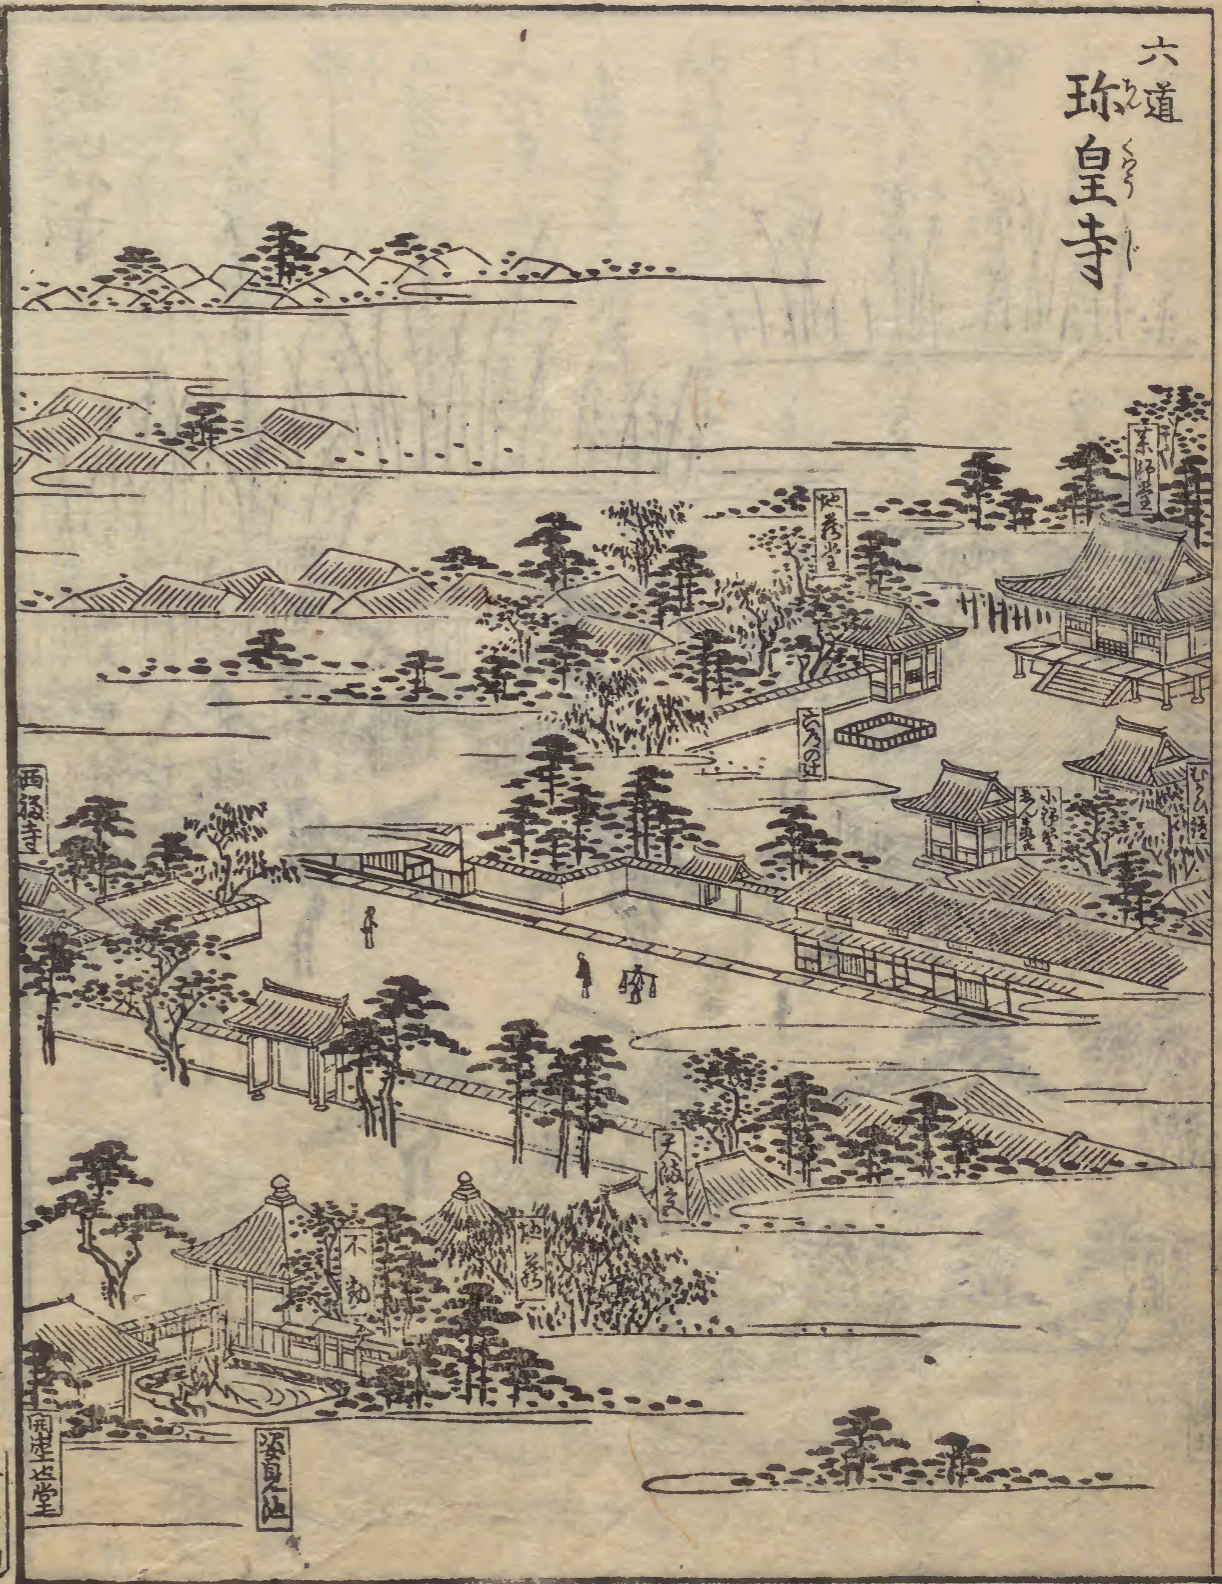 六道
珍皇寺
ちんくわうじ
薬師堂
地蔵堂
六道の辻
小野篁
西福寺
天満宮
不動
地蔵
開山堂
姿見池